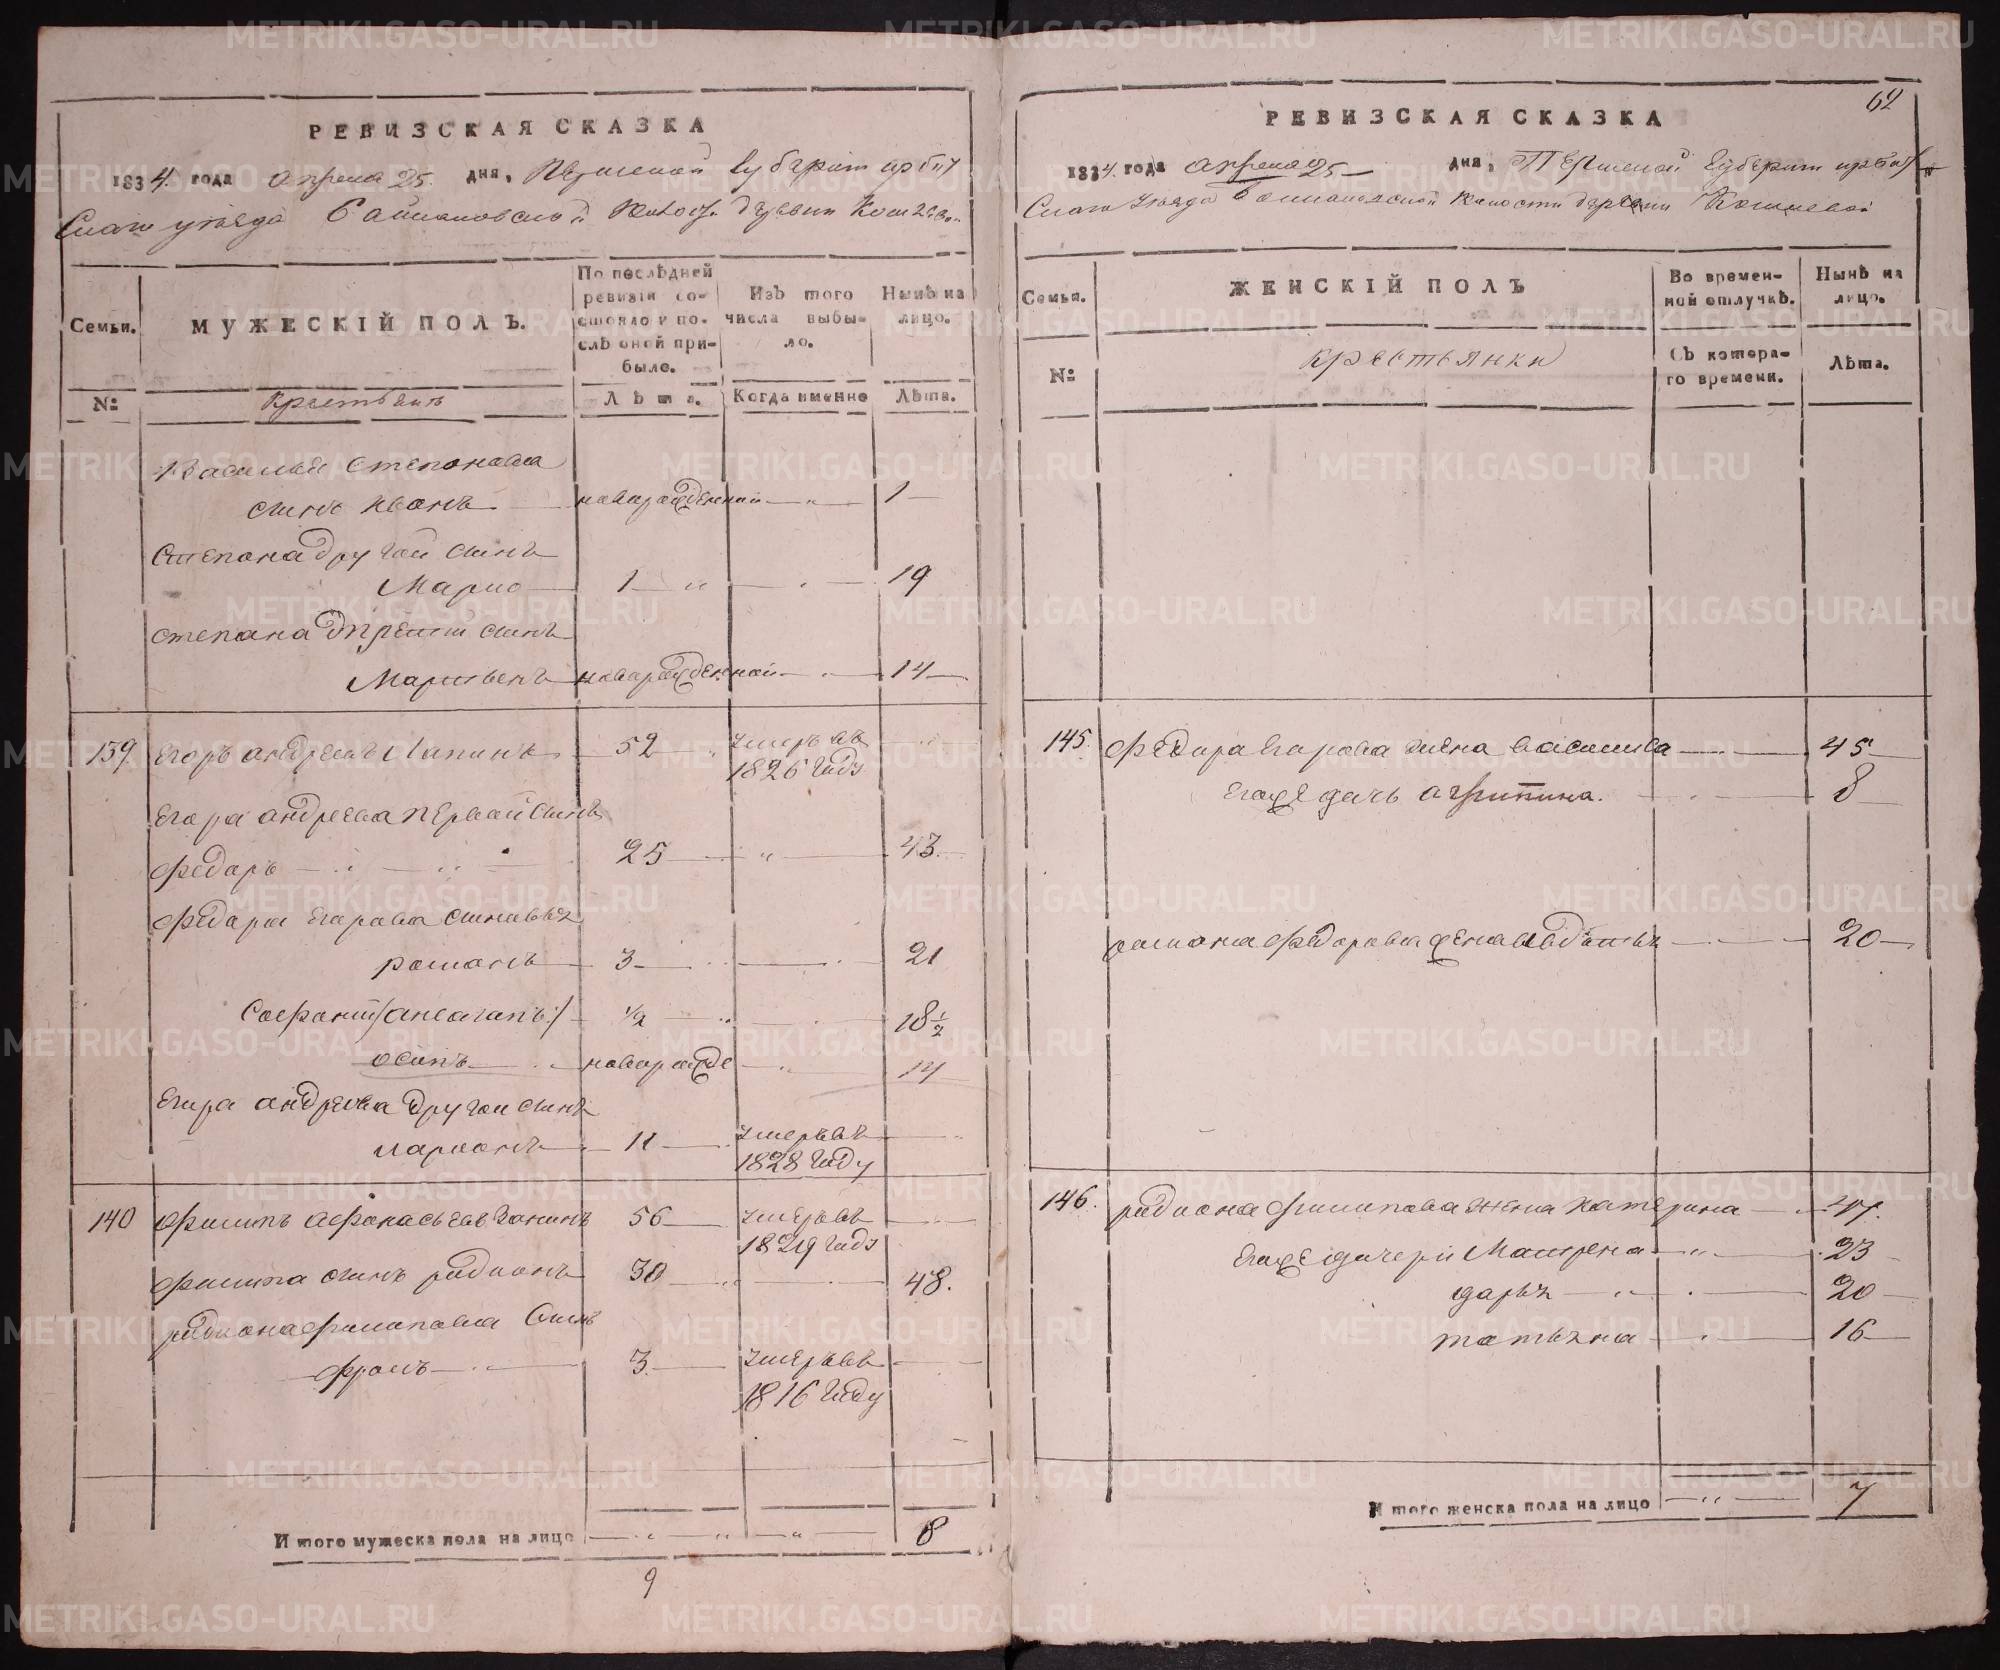 РЕВИЗСКАЯ СКАЗКА
1834. года апреля 25. дня, Пермской губернии ирбит
скаго уезда Волос. деревни
Семьи.
МУЖЕСКІЙ ПОЛЪ.
По послѣдней ревизіи состояло и послѣ оной прибыло.
Изъ того числа выбыло.
Нынѣ на лицо.
№
Крестьянъ
Лѣта.
Когда именно
Лѣта.
Василья Степонова
сынъ Иванъ новарожденной 1
Степона другой сынъ
1 19
Степана третей сынъ
новарожденной 14
139 Егоръ андреевъ Лапинъ 52 умеръ въ
1826 году
Егора андреева первой сынъ
Федаръ 25 43.
Федара Егорова сыновья
романъ 3 21
Софроний 1/2 18 1/2
осипъ новарожде 14
Егора андреева другой сынъ
ларионъ 11 умеръ въ
1828 году
140 Филипъ Афонасьевъ 56 умеръ въ
1829 году
Филипа сынъ радионъ 30 48.
радиона филипова Сынъ
Фролъ 3. умеръ въ
1816 году
Итого мужеска пола на лицо 8
9
62
РЕВИЗСКАЯ СКАЗКА
1834. года апреля 25 дня, Пермской Губернии ирбит
скаго уезда волости деревни
Семьи.
ЖЕНСКІЙ ПОЛЪ
Во временной отлучкѣ.
Нынѣ на лицо.
№
крестьянки
Съ котораго времени.
Лѣта.
145. Федара Егорова жена василиса 45
Егоже дочь агрипина. 8
романа Федорова жена 20
146. радиона Филипова жена катерина 47.
Егоже дочери Матрена 23
дарья 20
татьяна 16
Итого женска пола на лицо 7
METRIKI.GASO-URAL.RU